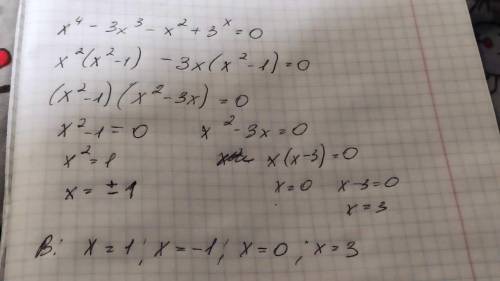 x⁴ - 3x³ - x² + 3ˣ = 0
x²(x²-1) - 3x(x²-1) = 0
(x²-1)(x²-3x) = 0
x²-1 = 0 x²-3x = 0
x² = 1 x(x-3) = 0
x = ±1 x=0 x-3=0
x=3
В: x = 1; x = -1; x = 0; x = 3